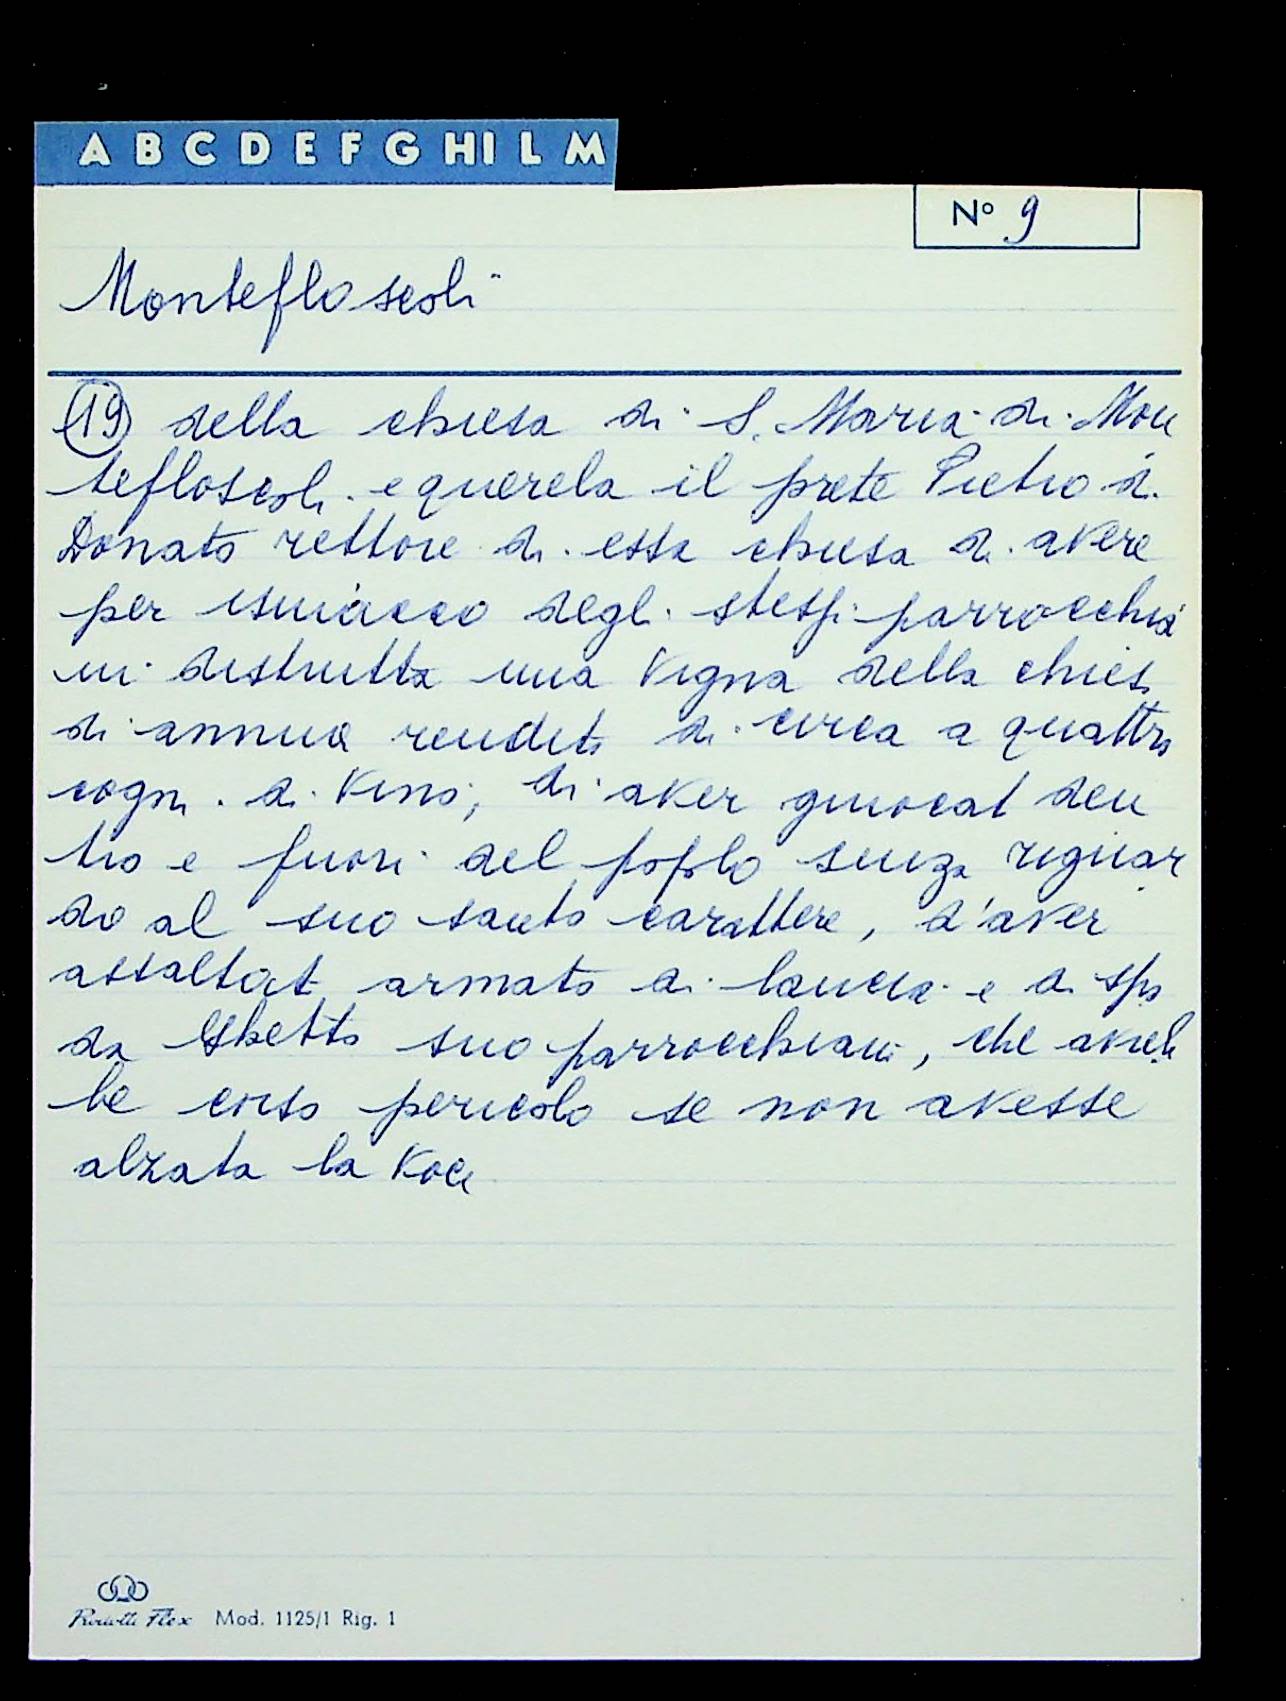 A B C D E F G HI L M
Nº 9
Montefloscoli
(19) della chiesa di S. Maria di Mon
tefloscoli e querela il prete Pietro di
Donato rettore di essa chiesa di avere
per ismacco degli stessi parrocchia
ni distrutta una vigna della chiesa
di annua rendita di circa a quattro
cogni di vino, di aver giuocat den
tro e fuori del poplo senza riguar
do al suo santo carattere, d'aver
assaltat armato di lancia e di spa
da Ghetto suo parrocchiani, che avreb
be corso pericolo se non avesse
alzata la voce
Flex Mod. 1125/1 Rig. 1